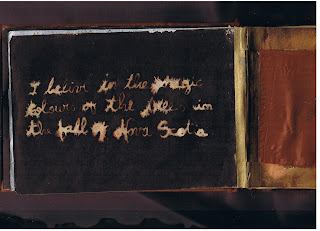 I believe in the magic
colours on the trees in
the fall of Nova Scotia